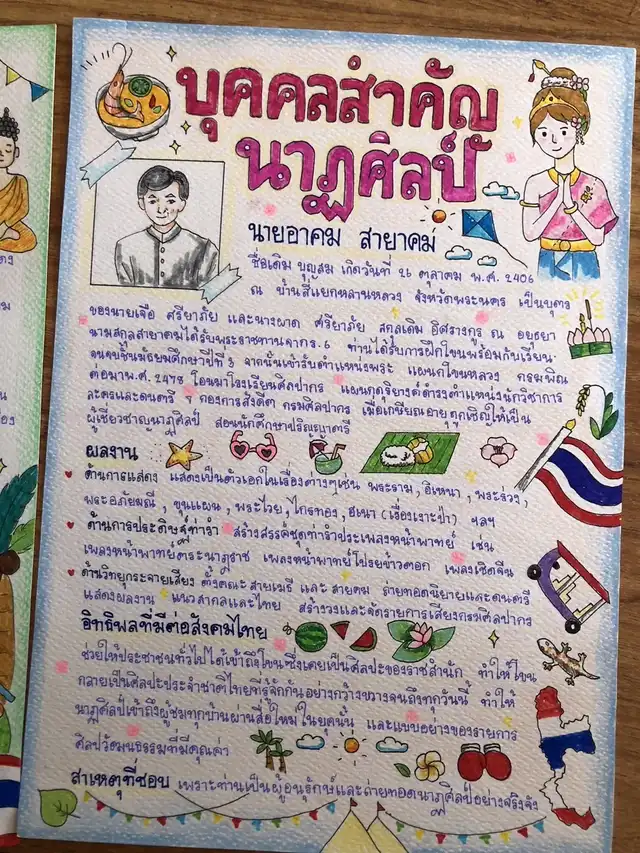 บุคคลสำคัญ
นาฏศิลป์
นายอาคม สายาคม
ชื่อเดิม บุญสม เกิดวันที่ 26 ตุลาคม พ.ศ. 2406
ณ บ้านสี่แยกหลานหลวง จังหวัดพระนคร เป็นบุตร
ของนายเจือ ศรียาภัย และนางผาด ศรียาภัย สกุลเดิม อิศรางกูร ณ อยุธยา
นามสกุลสายาคมได้รับพระราชทานจาก ร.6 ท่านได้รับการฝึกโขนพร้อมกับเรียน
จนจบชั้นมัธยมศึกษาปีที่ 3 จากนั้นเข้ารับตำแหน่งพระ แผนกโขนหลวง กรมพิณ
ต่อมาพ.ศ. 2478 โอนมาโรงเรียนศิลปากร แผนกดุริยางค์ดำรงตำแหน่งนักวิชาการ
ละครและดนตรี กองการสังคีต กรมศิลปากร เมื่อเกษียณอายุถูกเชิญให้เป็น
ผู้เชี่ยวชาญนาฏศิลป์ สอนนักศึกษาปริญญาตรี
ผลงาน
ด้านการแสดง แสดงเป็นตัวเอกในเรื่องต่างๆเช่น พระราม, อิเหนา, พระร่วง,
พระอภัยมณี, ขุนแผน, พระไวย, ไกรทอง, ฮเนา (เรื่องเงาะป่า) ฯลฯ
ด้านการประดิษฐ์ท่ารำ สร้างสรรค์ชุดท่ารำประเพลงหน้าพาทย์ เช่น
เพลงหน้าพาทย์ตระนาฏราช เพลงหน้าพาทย์โปรยข้าวตอก เพลงเชิดจีน
ด้านวิทยุกระจายเสียง ตั้งคณะสายเมธี และ สายคม ถ่ายทอดนิยายและดนตรี
แสดงผลงาน แนวสากลและไทย สร้างวงและจัดรายการเสียงกรมศิลปากร
อิทธิพลที่มีต่อสังคมไทย
ช่วยให้ประชาชนทั่วไปได้เข้าถึงโขนซึ่งเคยเป็นศิลปะของราชสำนัก ทำให้โขน
กลายเป็นศิลปะประจำชาติไทยที่รู้จักกันอย่างกว้างขวางจนถึงทุกวันนี้ ทำให้
นาฏศิลป์เข้าถึงผู้ชมทุกบ้านผ่านสื่อใหม่ในยุคนั้น และแบบอย่างของรายการ
ศิลปวัฒนธรรมที่มีคุณค่า
สาเหตุที่ชอบ เพราะท่านเป็นผู้อนุรักษ์และถ่ายทอดนาฏศิลป์อย่างจริงจัง